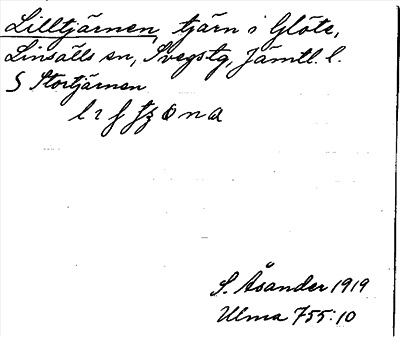 Lilltjärnen, tjärn i Glöte,
Linsälls sn, Svegs tg, Jämtl. l.
S Stortjärnen
S. Åsander 1919
Ulma 755:10